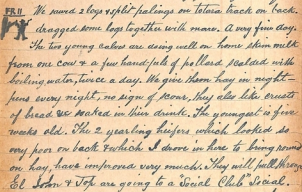 FR 11
We sawed 2 logs & split palings on Totara track on back.
dragged some logs together with mare. A very fine day.
The two young calves are doing well on home skim milk
from one cow & a few handfuls of pollard scalded with
boiling water, twice a day. We give them hay in night-
pens every night, no sign of scour, they also like crusts
of bread &c soaked in their drink. The youngest is five
weeks old. The 2 yearling heifers which looked so
very poor on back & which I drove in here to bring round
on hay, have improved very much. They will pull through
El & Top are going to a "Social Club" Social.